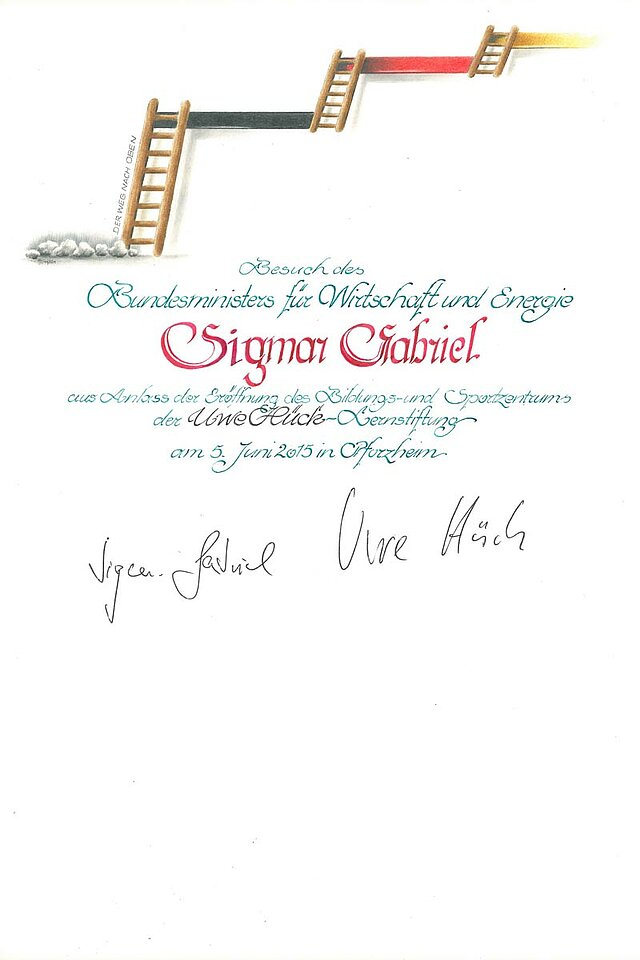 DER WEG NACH OBEN
Besuch des
Bundesministers für Wirtschaft und Energie
Sigmar Gabriel
aus Anlass der Eröffnung des Bildungs- und Sportzentrums
der Uwe Hück-Lernstiftung
am 5. Juni 2015 in Pforzheim
Sigmar Gabriel Uwe Hück